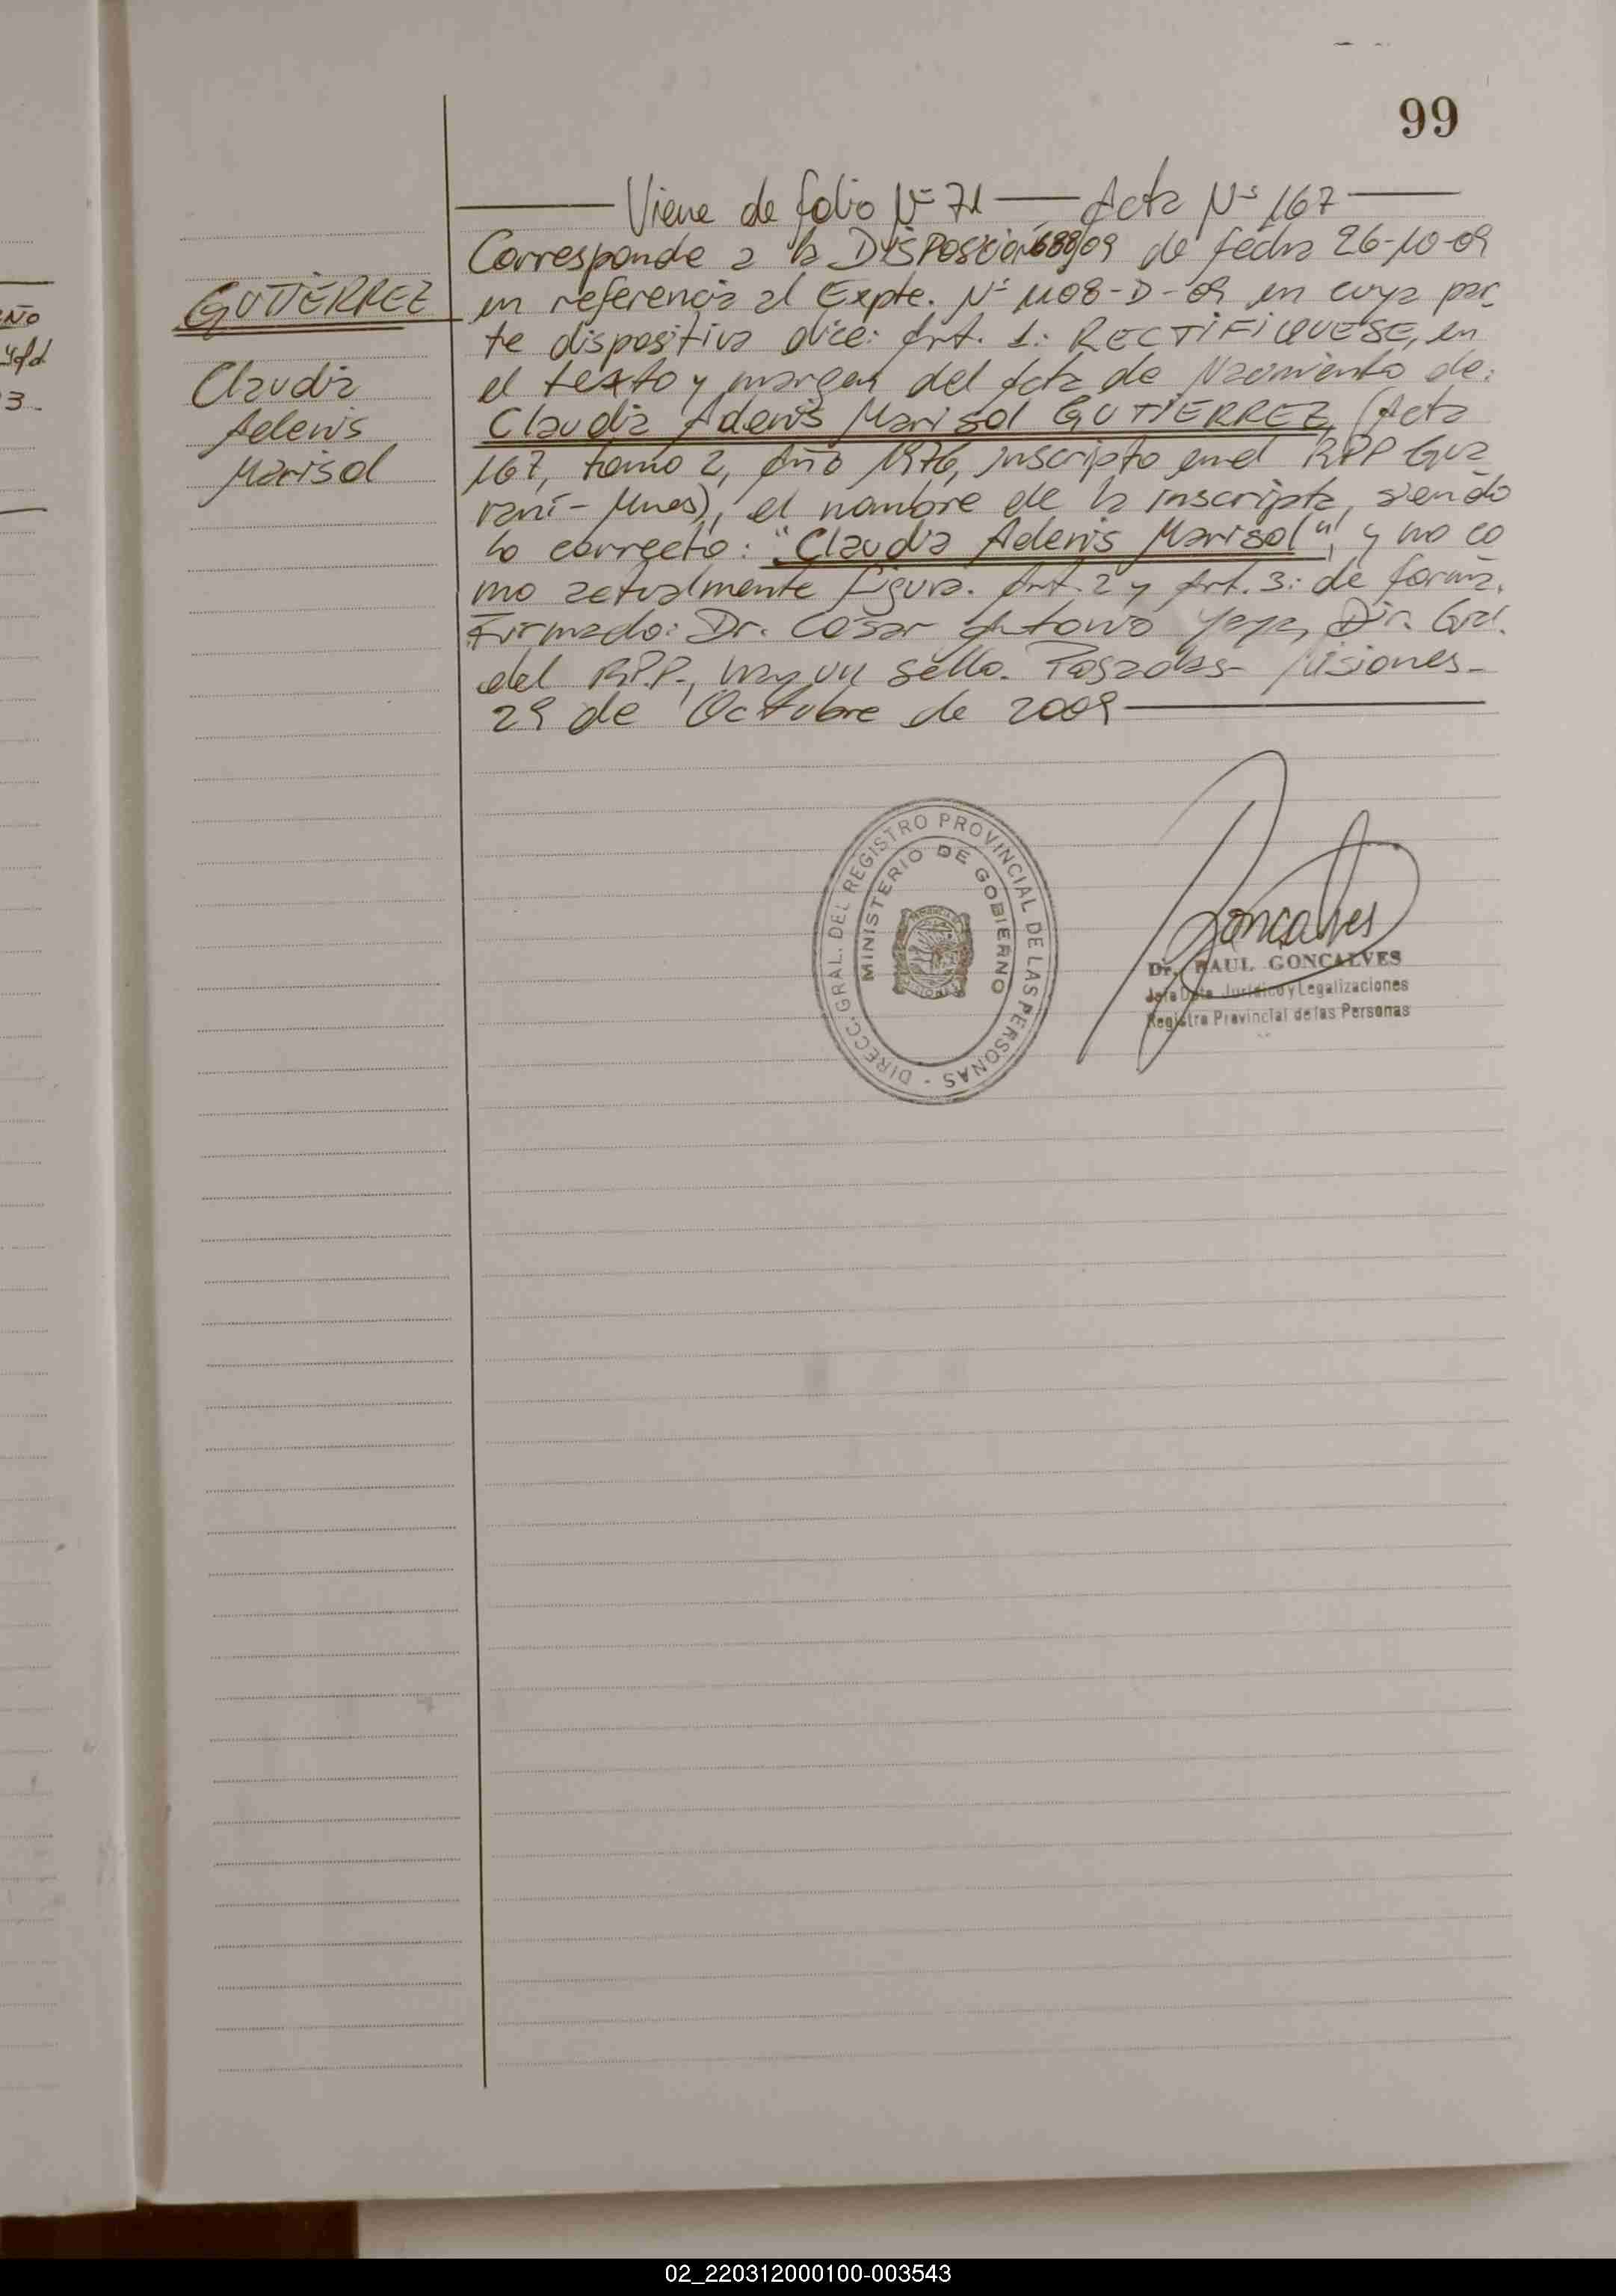 99
Viene de folio Nº 71 — Acta Nº 167
Corresponde a la Disposición 688/09 de fecha 26-10-09
GUTIERREZ
Claudia
Adenis
Marisol
en referencia al Expte. Nº 1108-D-09 en cuya par
te dispositiva dice: Art. 1: RECTIFIQUESE, en
el texto y margen del Acta de Nacimiento de:
Claudia Adenis Marisol GUTIERREZ, (Acta
167, tomo 2, Año 1976, inscripto en el RPP Gua
raní - Mnes), el nombre de la inscripta, siendo
lo correcto: "Claudia Adenis Marisol", y no co
mo actualmente figura. Art. 2 y Art. 3: de forma.
Firmado: Dr. César Antonio Yaya, Dir. Gral.
del RPP., hay un sello. Posadas - Misiones -
29 de Octubre de 2009
DIRECC. GRAL. DEL REGISTRO PROVINCIAL DE LAS PERSONAS -
MINISTERIO DE GOBIERNO
Goncalves
Dr. RAUL GONCALVES
Jefe Dpto. Jurídico y Legalizaciones
Registro Provincial de las Personas
ÑO
3.
02_220312000100-003543